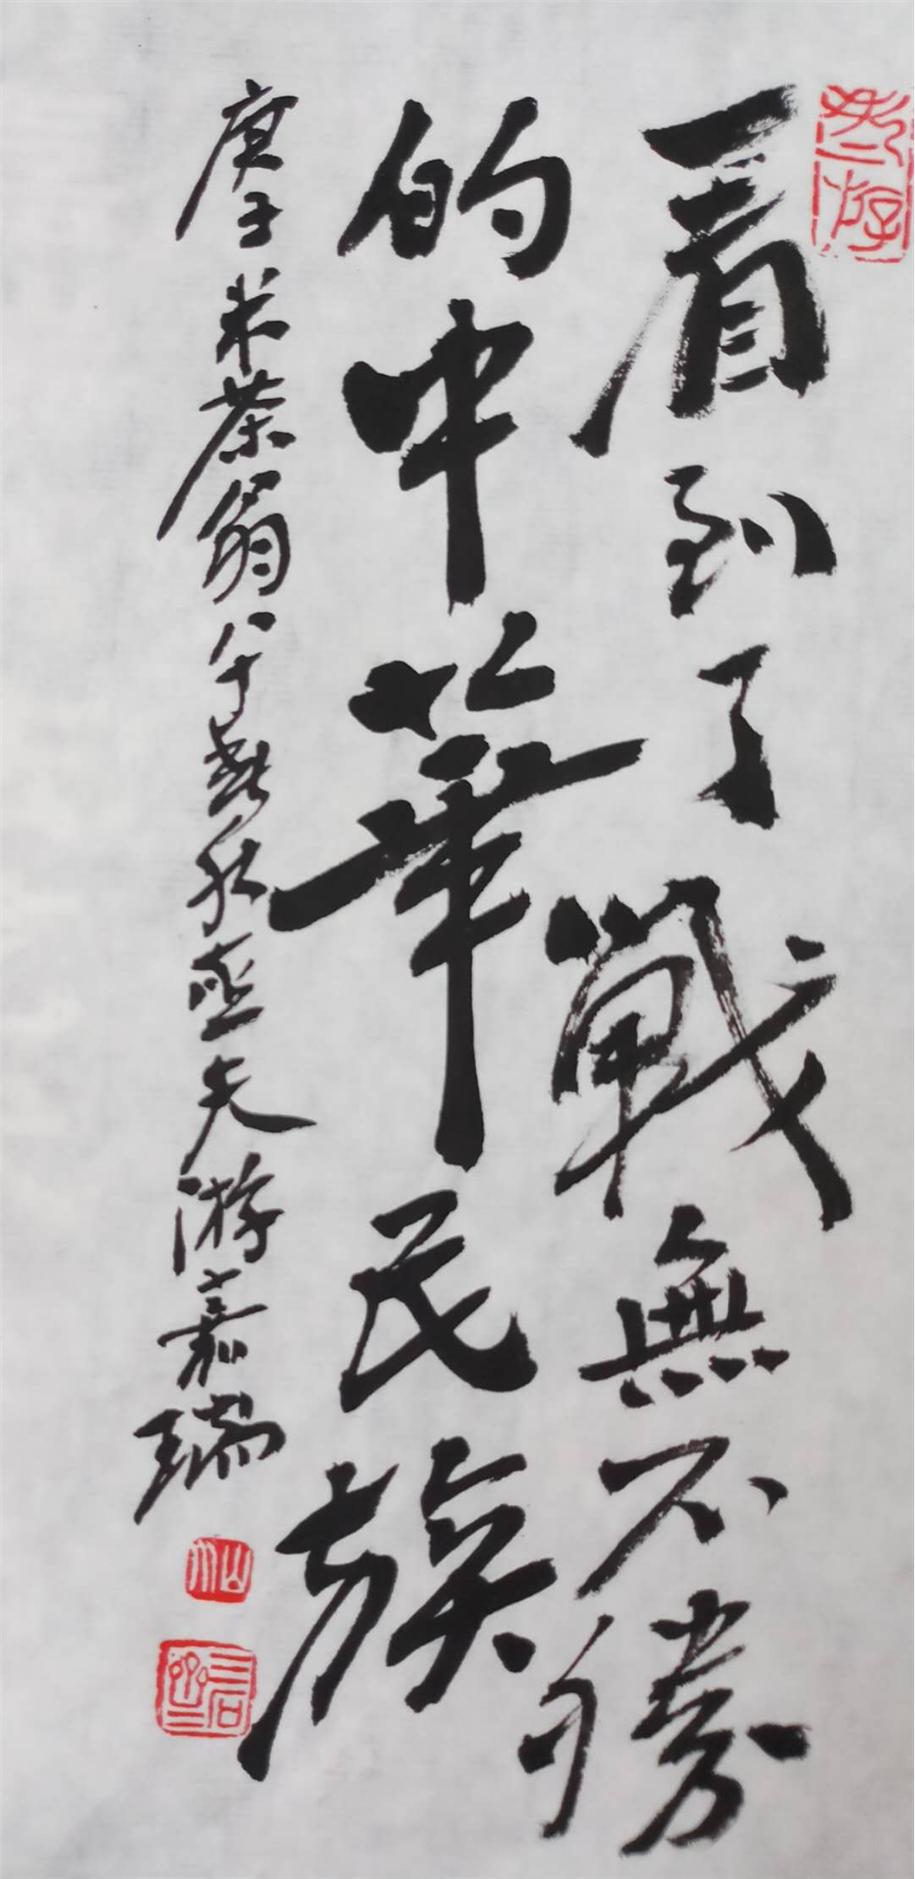 看到了戰無不勝
的中華民族
庚子米茶翁八十春秋 夫游嘉瑞